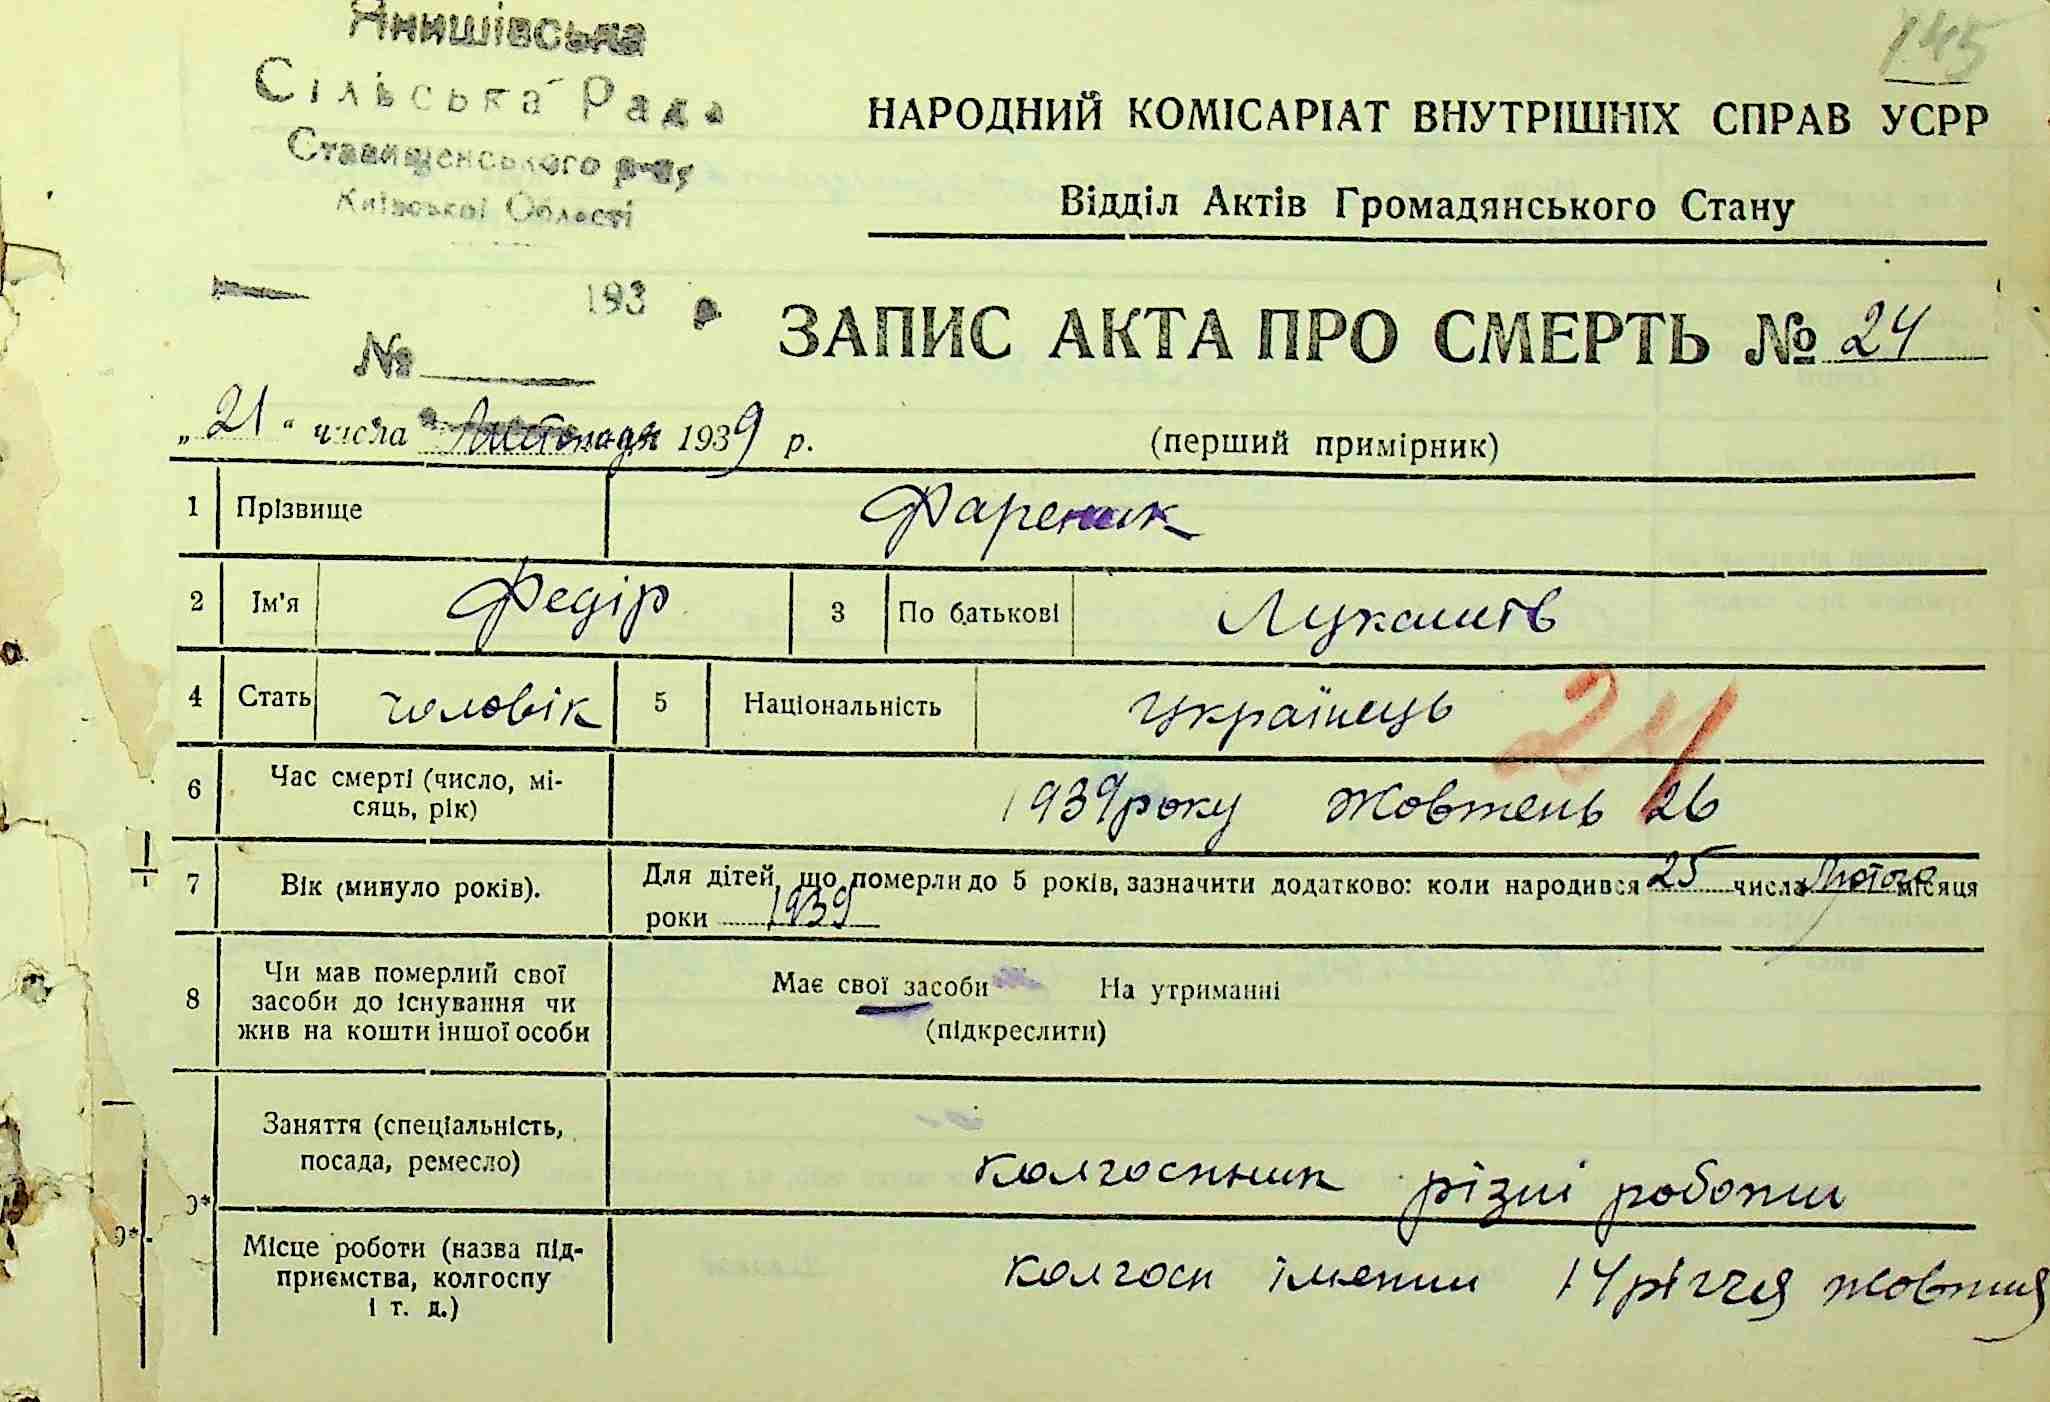 Янишівська
145
Сільська Рада
НАРОДНИЙ КОМІСАРІАТ ВНУТРІШНІХ СПРАВ УСРР
Ставищенського р-ну
Київської Області
Відділ Актів Громадянського Стану
193 р
ЗАПИС АКТА ПРО СМЕРТЬ № 24
№
„21“ числа Листопада 1939 р.
(перший примірник)
1 Прізвище Фареник
2 Ім'я Федір 3 По батькові Лукашів
4 Стать чоловік 5 Національність українець
24
6 Час смерті (число, мі-
сяць, рік)
1939 року жовтень 26
7 Вік (минуло років). Для дітей, що померли до 5 років, зазначити додатково: коли народився 25 числа Лютого місяця
роки 1939
8 Чи мав померлий свої
засоби до існування чи
жив на кошти іншої особи
Має свої засоби На утриманні
(підкреслити)
Заняття (спеціальність,
посада, ремесло)
колгоспник різні роботи
9*
9*.
Місце роботи (назва під-
приємства, колгоспу
і т. д.)
колгосп імени 14 річчя жовтня